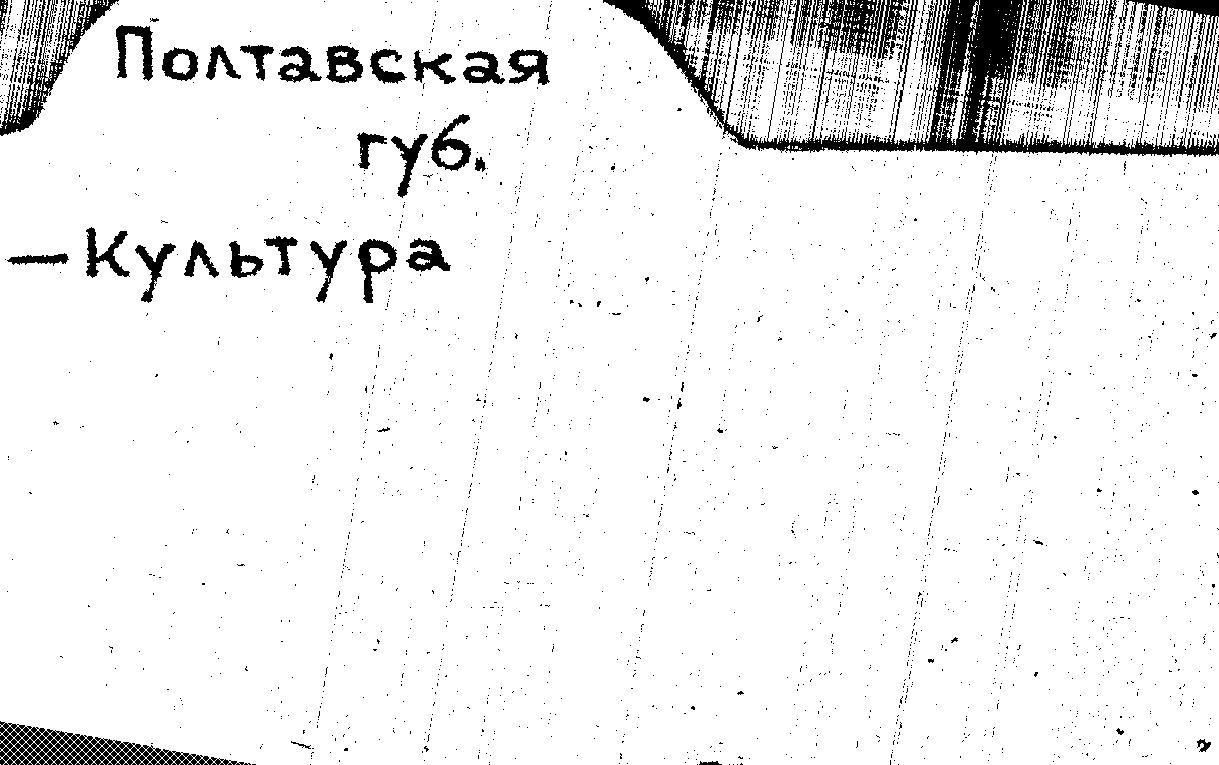 Полтавская
губ.
— Культура